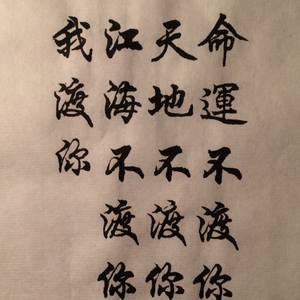 命運不渡你
天地不渡你
江海不渡你
我渡你